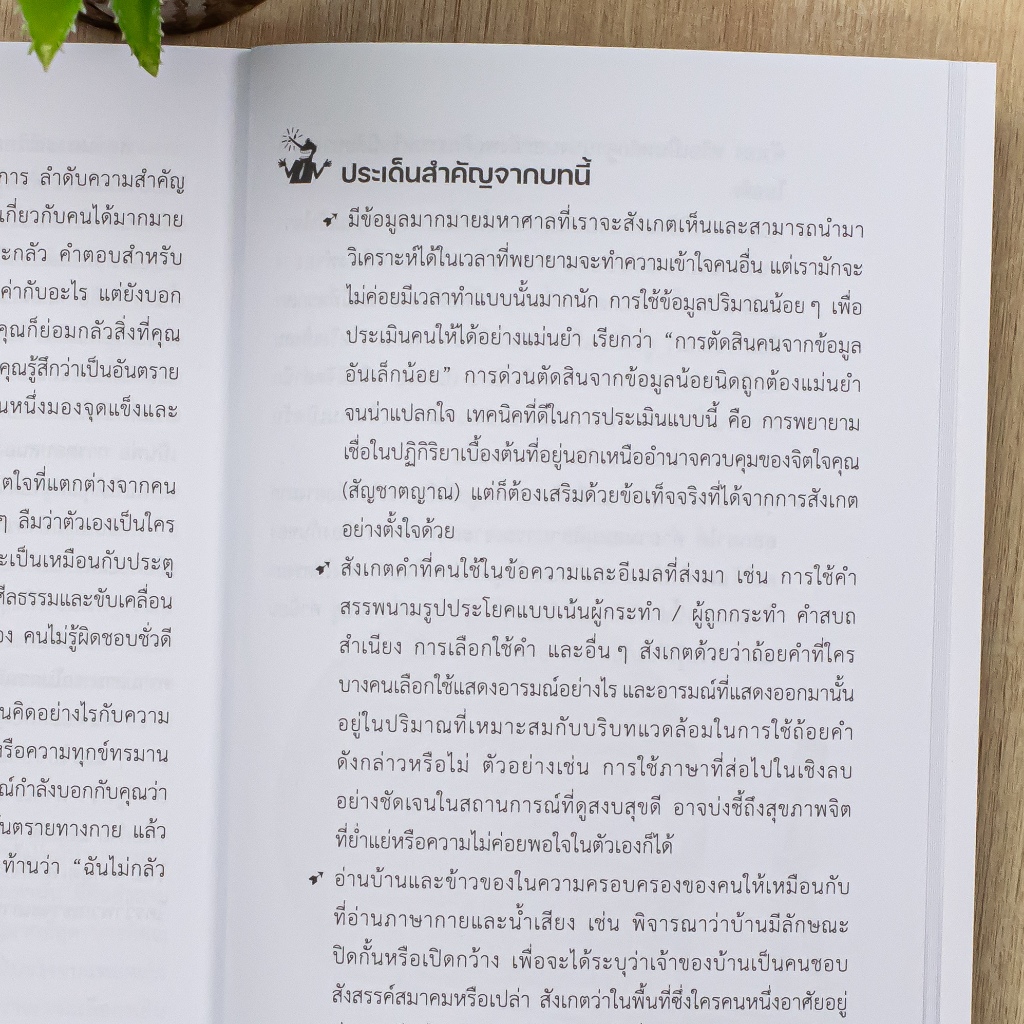 การ ลำดับความสำคัญ
เกี่ยวกับคนได้มากมาย
ะกลัว คำตอบสำหรับ
ค่ากับอะไร แต่ยังบอก
คุณก็ย่อมกลัวสิ่งที่คุณ
คุณรู้สึกว่าเป็นอันตราย
นหนึ่งมองจุดแข็งและ
ตใจที่แตกต่างจากคน
ๆ ลืมว่าตัวเองเป็นใคร
ะเป็นเหมือนกับประตู
ศีลธรรมและขับเคลื่อน
อง คนไม่รู้ผิดชอบชั่วดี
นคิดอย่างไรกับความ
หรือความทุกข์ทรมาน
ณ์กำลังบอกกับคุณว่า
ันตรายทางกาย แล้ว
ท้านว่า “ฉันไม่กลัว
ประเด็นสำคัญจากบทนี้
มีข้อมูลมากมายมหาศาลที่เราจะสังเกตเห็นและสามารถนำมา
วิเคราะห์ได้ในเวลาที่พยายามจะทำความเข้าใจคนอื่น แต่เรามักจะ
ไม่ค่อยมีเวลาทำแบบนั้นมากนัก การใช้ข้อมูลปริมาณน้อย ๆ เพื่อ
ประเมินคนให้ได้อย่างแม่นยำ เรียกว่า “การตัดสินคนจากข้อมูล
อันเล็กน้อย” การด่วนตัดสินจากข้อมูลน้อยนิดถูกต้องแม่นยำ
จนน่าแปลกใจ เทคนิคที่ดีในการประเมินแบบนี้ คือ การพยายาม
เชื่อในปฏิกิริยาเบื้องต้นที่อยู่นอกเหนืออำนาจควบคุมของจิตใจคุณ
(สัญชาตญาณ) แต่ก็ต้องเสริมด้วยข้อเท็จจริงที่ได้จากการสังเกต
อย่างตั้งใจด้วย
สังเกตคำที่คนใช้ในข้อความและอีเมลที่ส่งมา เช่น การใช้คำ
สรรพนามรูปประโยคแบบเน้นผู้กระทำ / ผู้ถูกกระทำ คำสบถ
สำเนียง การเลือกใช้คำ และอื่น ๆ สังเกตด้วยว่าถ้อยคำที่ใคร
บางคนเลือกใช้แสดงอารมณ์อย่างไร และอารมณ์ที่แสดงออกมานั้น
อยู่ในปริมาณที่เหมาะสมกับบริบทแวดล้อมในการใช้ถ้อยคำ
ดังกล่าวหรือไม่ ตัวอย่างเช่น การใช้ภาษาที่ส่อไปในเชิงลบ
อย่างชัดเจนในสถานการณ์ที่ดูสงบสุขดี อาจบ่งชี้ถึงสุขภาพจิต
ที่ย่ำแย่หรือความไม่ค่อยพอใจในตัวเองก็ได้
อ่านบ้านและข้าวของในความครอบครองของคนให้เหมือนกับ
ที่อ่านภาษากายและน้ำเสียง เช่น พิจารณาว่าบ้านมีลักษณะ
ปิดกั้นหรือเปิดกว้าง เพื่อจะได้ระบุว่าเจ้าของบ้านเป็นคนชอบ
สังสรรค์สมาคมหรือเปล่า สังเกตว่าในพื้นที่ซึ่งใครคนหนึ่งอาศัยอยู่